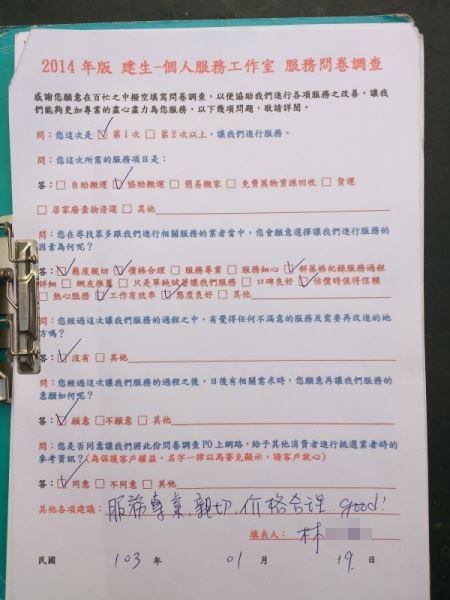 2014 年版 建生-個人服務工作室 服務問卷調查
感謝您願意在百忙之中撥空填寫問卷調查，以便協助我們進行各項服務之改善，讓我
們能夠更加專業的盡心盡力為您服務，以下幾項問題，敬請詳閱。
問：您這次是 ☑ 第1次 □ 第2次以上，讓我們進行服務。
問：您這次所需的服務項目是：
答：□ 自助搬運 ☑ 協助搬運 □ 簡易搬家 □ 免費舊物資源回收 □ 貨運
□ 居家廢棄物清運 □ 其他
問：您在尋找眾多跟我們進行相關服務的業者當中，您會願意選擇讓我們進行服務的
因素為何呢？
答：☑ 態度親切 ☑ 價格合理 □ 服務專業 □ 服務細心 ☑ 部落格紀錄服務過程
詳細 □ 網友推薦 □ 只是單純試著讓我們服務 □ 口碑良好 ☑ 估價時值得信賴
□ 熱心服務 ☑ 工作有效率 ☑ 態度良好 □ 其他
問：您經過這次讓我們服務的過程之中，有覺得任何不滿意的服務及需要再改進的地
方嗎？
答：☑ 沒有 □ 其他
問：您經過這次讓我們服務的過程之後，日後有相關需求時，您願意再讓我們服務的
意願如何呢？
答：☑ 願意 □不願意 □ 其他
問：您是否同意讓我們將此份問卷調查PO上網路，給予其他消費者進行挑選業者時的
參考資訊？(為保護客戶權益，名字一律以馬賽克顯示，請客戶放心)
答：☑ 同意 □ 不同意 □ 其他
其他各項建議：服務專業、親切、价格合理. good!
填表人：林
民國 103 年 01 月 19 日